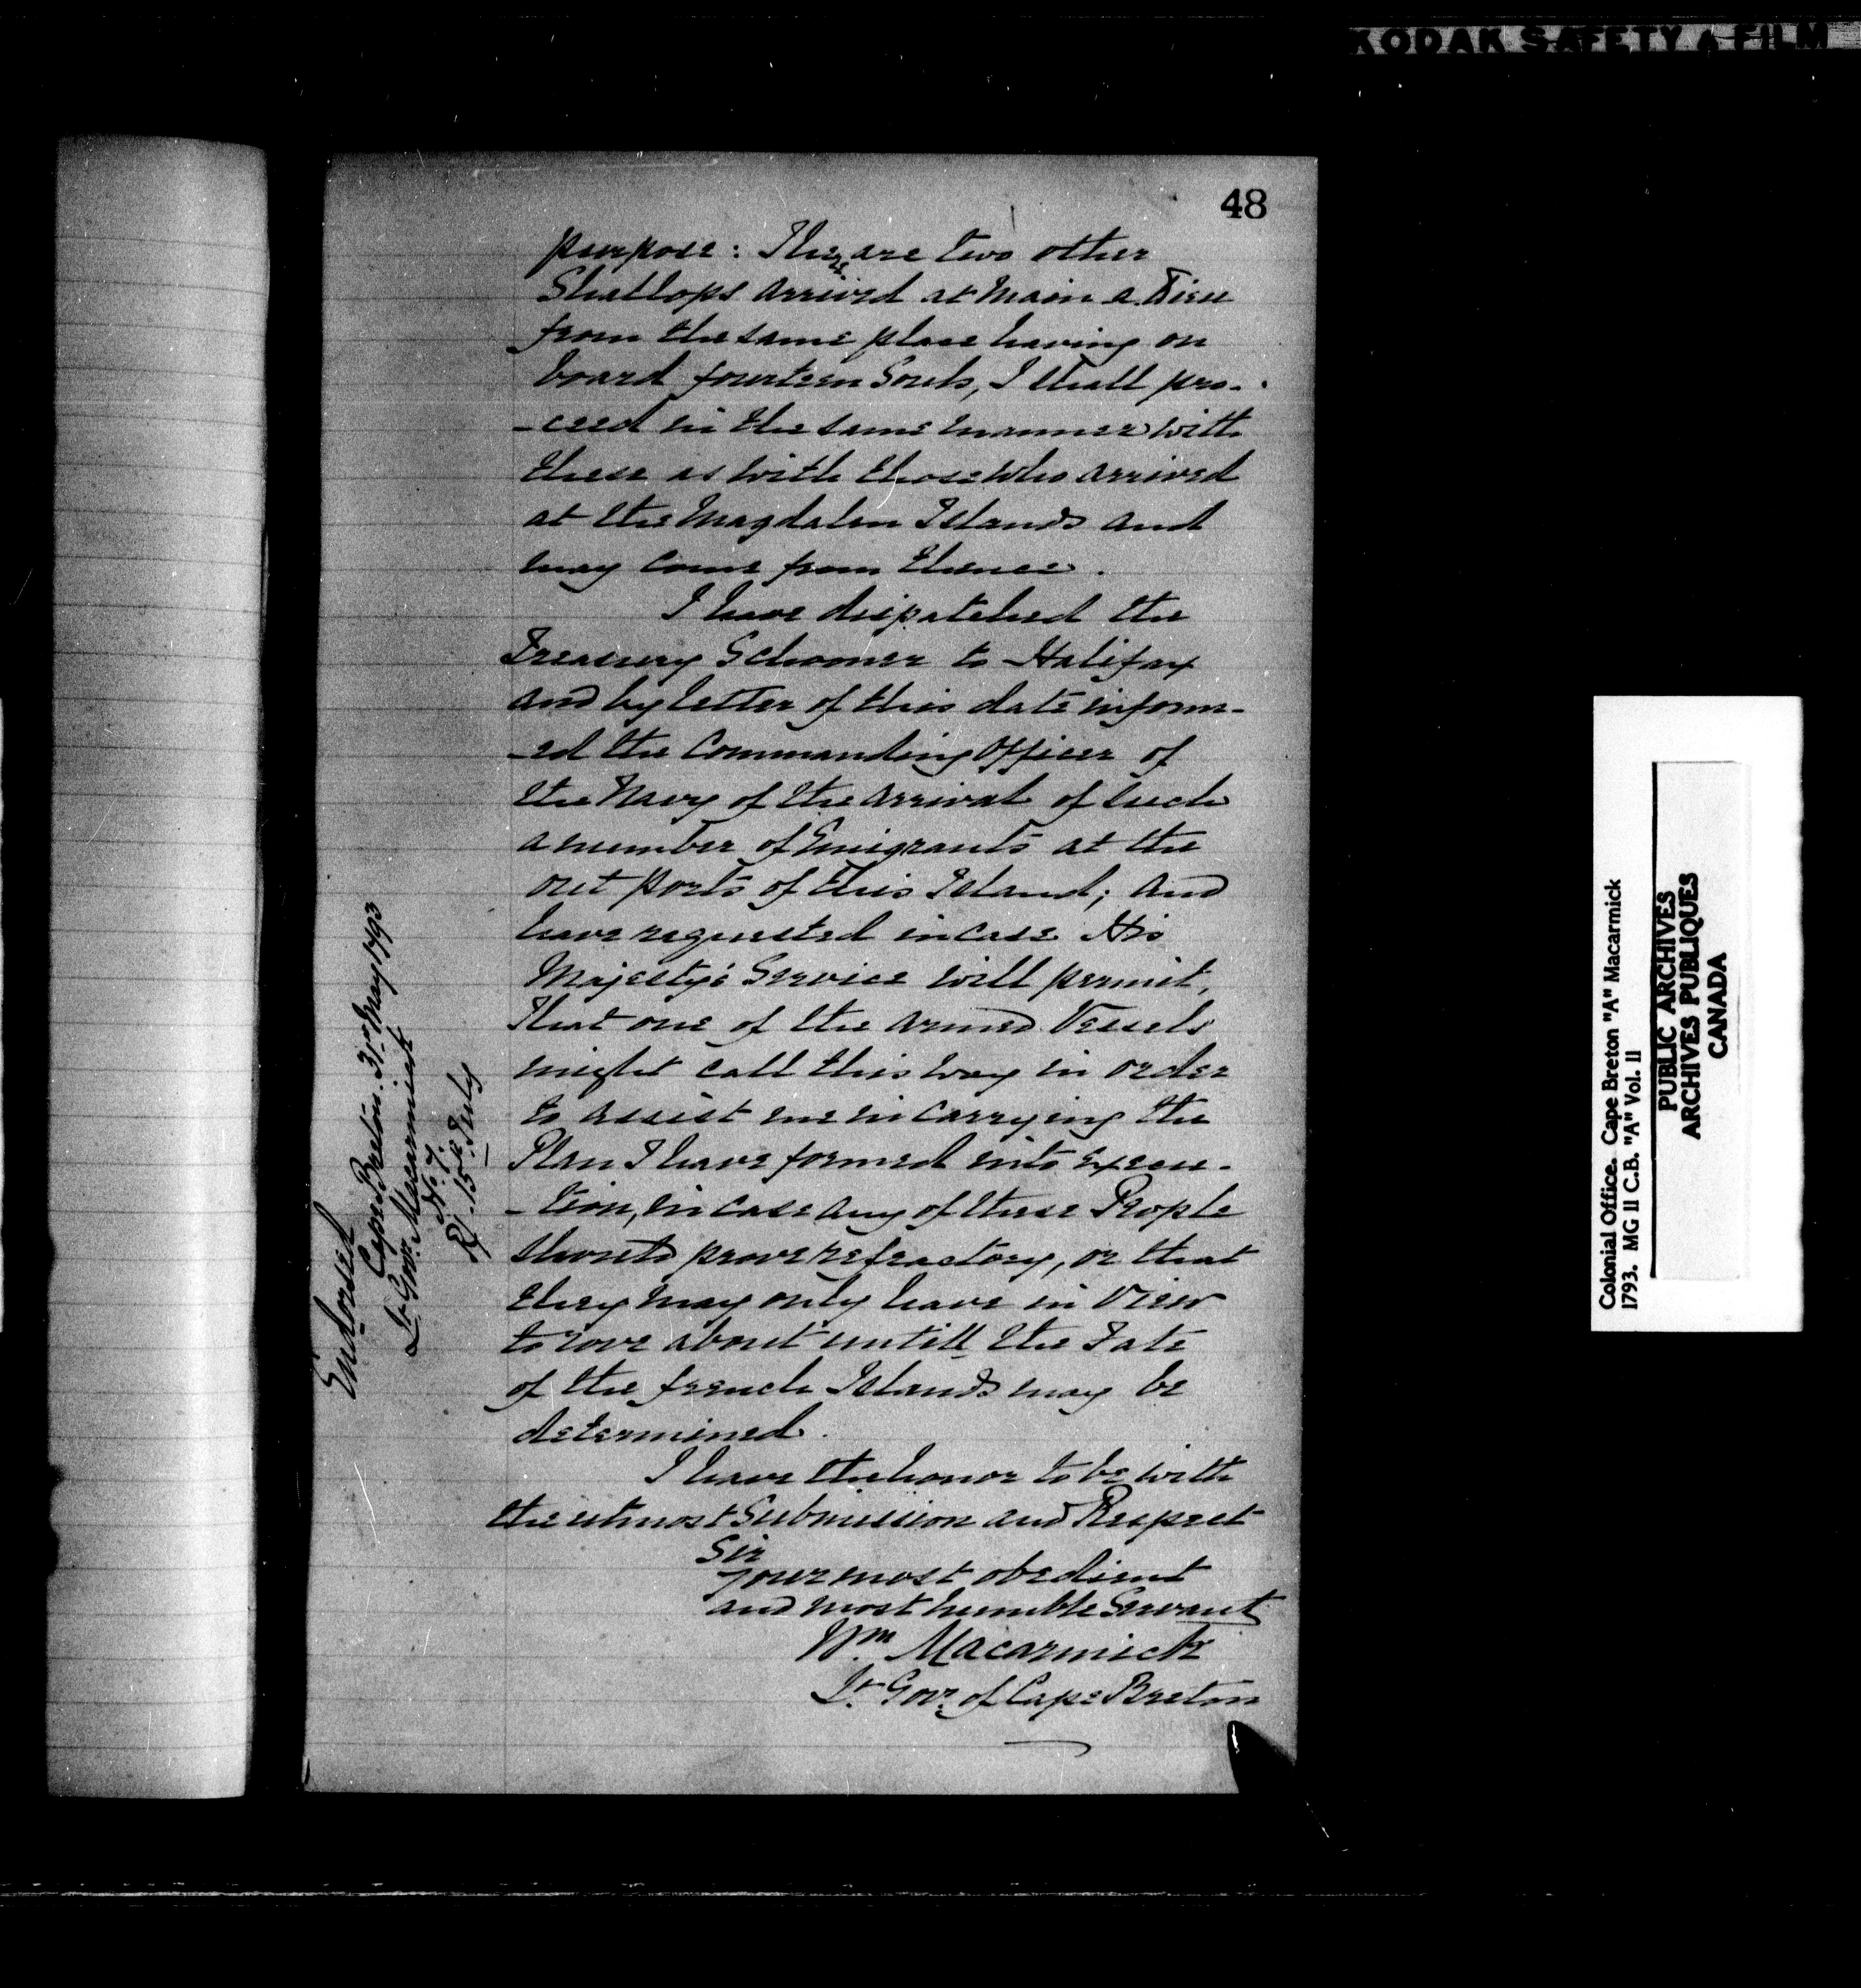 KODAK SAFETY FILM
48
purpose: There are two other
Shallops arrived at Main a. Dieu
from the same place having on
board fourteen Souls, I shall pro-
-ceed in the same manner with
these as with those who arrived
at the Magdalen Islands and
may come from thence.
I have dispatched the
Treasury Schooner to Halifax
and by letter of this date inform-
-ed the Commanding Officer of
the Navy of the arrival of such
a number of Emigrants at the
out ports of this Island; and
have requested in case His
Majesty's Service will permit,
that one of the armed Vessels
might call this way in order
to assist me in carrying the
Plan I have formed into Execu-
-tion, in case any of these People
should prove refractory, or that
they may only have in View
to rove about untill the Fate
of the french Islands may be
determined.
I have the honor to be with
the utmost Submission and Respect
Sir
your most obedient
and most humble Servant
Wm. Macarmick
Lt. Govr. of Cape Breton
Endorsed
Cape Breton. 31st May 1793
Lt. Govr. Macarmick
No. 7.
Rf. 15th July
Colonial Office. Cape Breton "A" Macarmick
1793. MG 11 C.B. "A" Vol. 11
PUBLIC ARCHIVES
ARCHIVES PUBLIQUES
CANADA